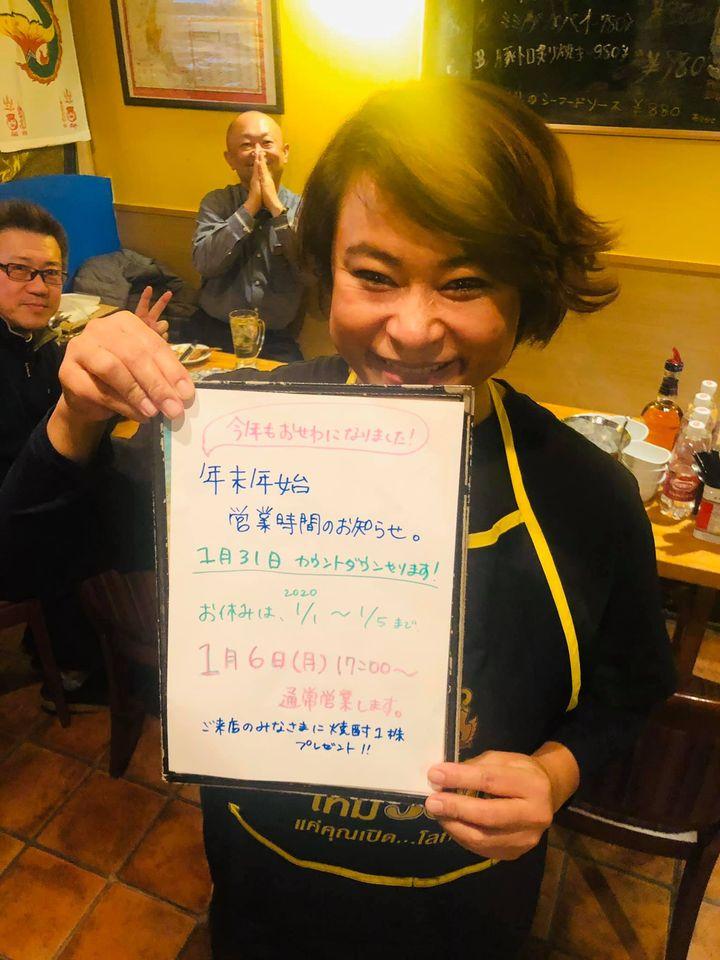 ミミガー
750
豚トロ炙り焼き 950
¥980
シーフードソース ¥880
今年もおせわになりました!
年末年始
営業時間のお知らせ。
1月31日 カウントダウンやります!
2020
お休みは、1/1～1/5まで
1月6日(月)17:00～
通常営業します。
ご来店のみなさまに焼酎1杯
プレゼント!!
แค่คุณเปิด...โลก